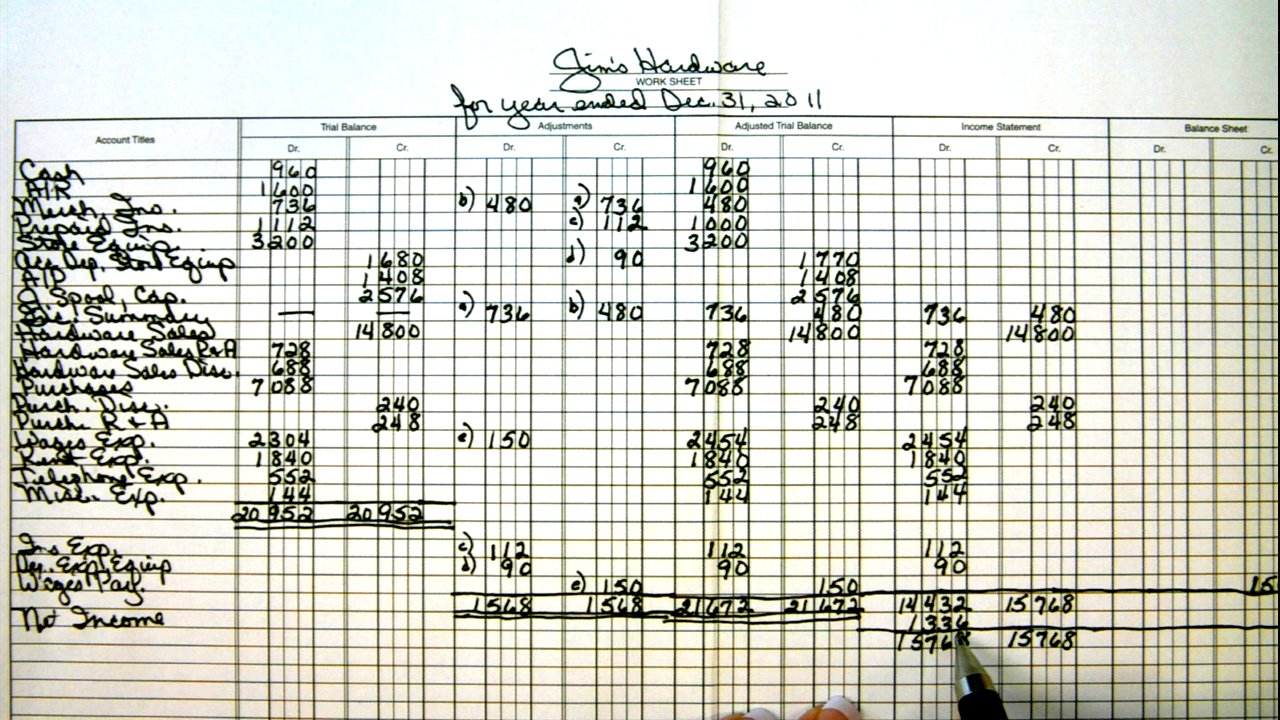 Jim's Hardware
WORK SHEET
for year ended Dec. 31, 2011
Account Titles Trial Balance Adjustments Adjusted Trial Balance Income Statement Balance Sheet
Dr. Cr. Dr. Cr. Dr. Cr. Dr. Cr. Dr. Cr.
Cash 960 960
A/R 1600 1600
Merch. Inv. 736 b) 480 a) 736 480
Prepaid Ins. 1112 c) 112 1000
Store Equip. 3200 3200
Acc. Dep. Store Equip 1680 d) 90 1770
A/P 1408 1408
Spool, Cap. 2576 2576
Inc. Summary — — a) 736 b) 480 736 480 736 480
Hardware Sales 14800 14800 14800
Hardware Sales R&A 728 728 728
Hardware Sales Disc. 688 688 688
Purchases 7088 7088 7088
Purch. Disc. 240 240 240
Purch. R & A 248 248 248
Wages Exp. 2304 e) 150 2454 2454
Rent Exp. 1840 1840 1840
Telephone Exp. 552 552 552
Misc. Exp. 144 144 144
20952 20952
Ins Exp. c) 112 112 112
Dep. Exp. Equip d) 90 90 90
Wages Pay. e) 150 150 15
1568 1568 21672 21672 14432 15768
Net Income 1336
15768 15768